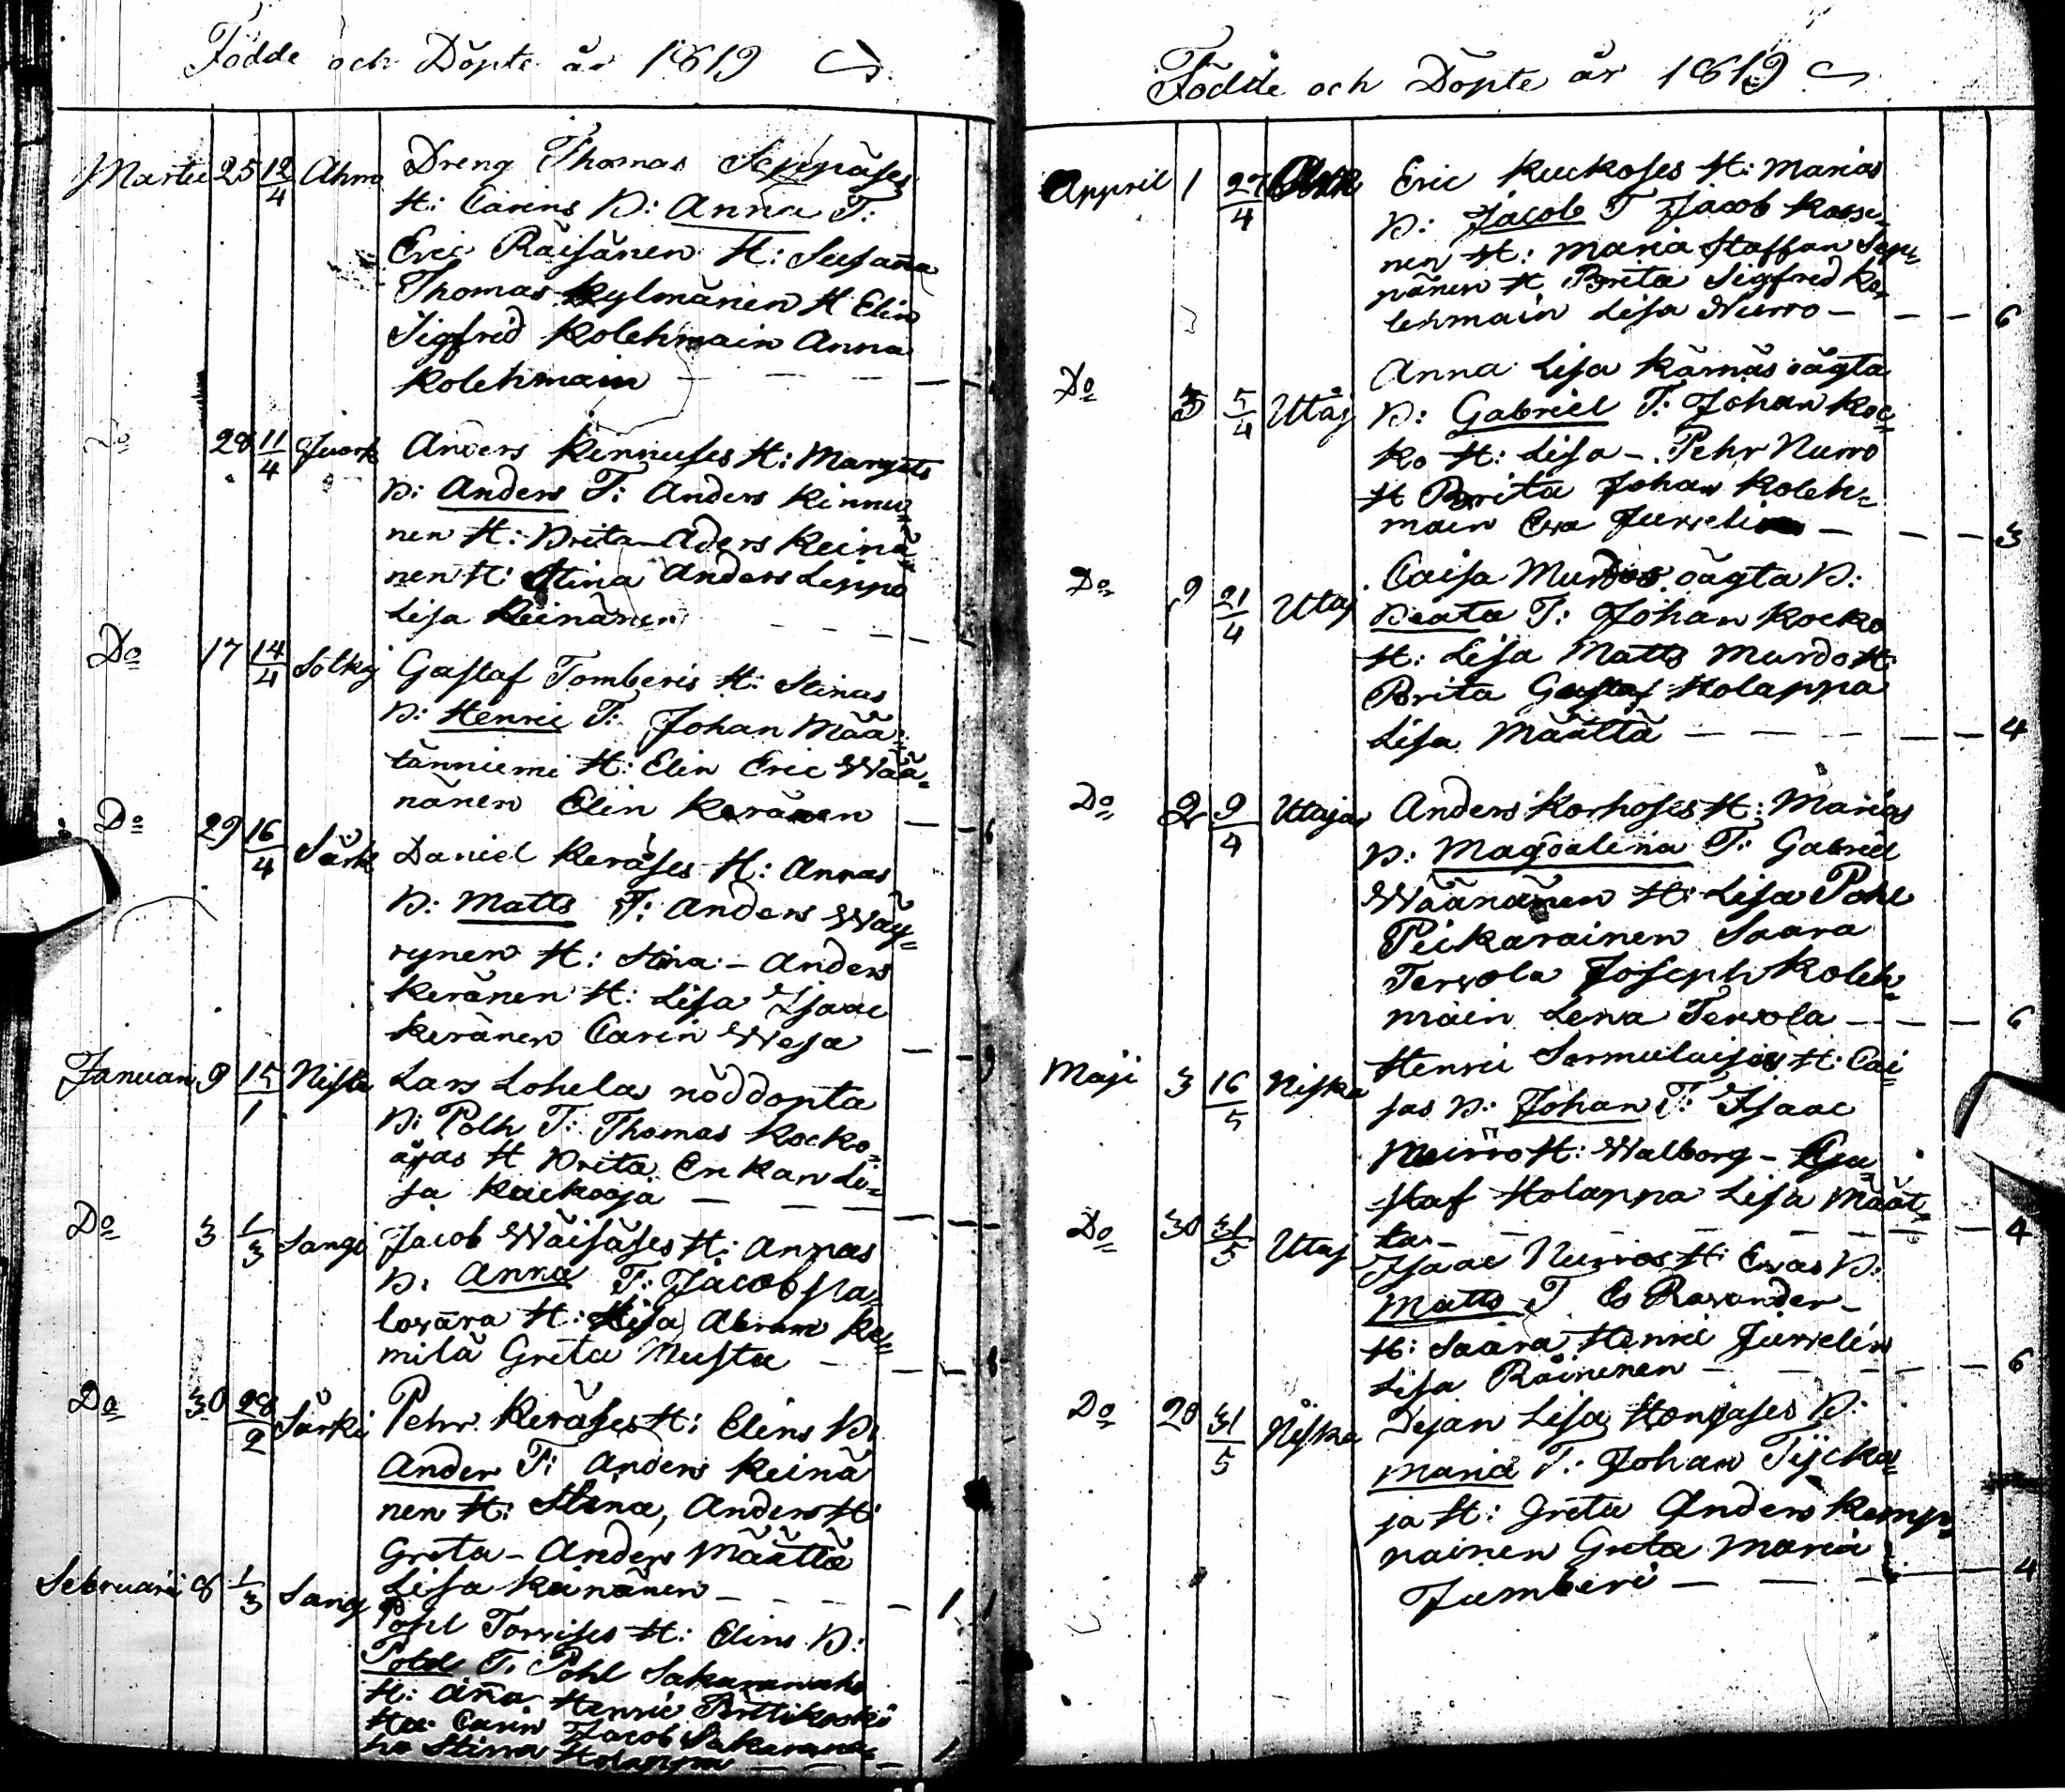 Födde och Döpte år 1819
Martii 25 12/4 Ahm Dreng Thomas Seppäses
H: Carins B: Anna T:
Eric Räisänen H: Susana
Thomas Kylmänen H Elin
Sigfrid Kolehmain Anna
Kolehmain
Do 28 11/4 Juork Anders Kinnuses H: Margets
B: Anders T: Anders Kinnu=
nen H: Brita Aders Keinä=
nen H: Stina Anders Leppo
Lisa Keinänen
Do 17 14/4 Sotkj Gustaf Tomberis H: Stinas
B: Henric T: Johan Mää=
tänniemi H: Elin Eric Wää=
nänen Elin Keränen
Do 29 16/4 Särk Daniel Keräses H: Annas
B: Matts T: Anders Wäy=
rynen H: Stina - Anders
Keränen H: Lisa Isaac
Keränen Carin Wesa
Januari 9 15/1 Niska Lars Lohelas nöddopta
B: Polh T: Thomas Kocko=
ajas H Brita Er Kan Li=
sa Kuckoaja
Do 3 1/3 Sangi Jacob Wäisäses H: Annas
B. Anna T: Jacob Pa=
lovara H: Lisa Abram Ke=
milä Greta Musta
Do 30 28/2 Särki Pehr Keräses H: Elins B:
Ander T: Anders Keinä
nen H: Stina, Anders H:
Greta - Anders Määttä
Lisa Keinänen 1
Februarii 8 1/3 Sang Pohl Torvises H: Elins B:
Pohl T. Pohl Sakaranaho
H: Aña Henric Pittikoski
H: Carin Jacob Sakarana=
ho Stina Holappa 1
Födde och Döpte år 1819
Appril 1 27/4 Eric Kuckoses H: Marias
B: Jacob T Jacob Kosse=
nen H: Maria Staffan Sep=
pänen H Brita Sigfred Ko=
lehmain Lisa Nurro 6
Do 3 5/4 Utaj Anna Lisa Kärnäs oägta
B: Gabriel T: Johan Koc=
ko H: Lisa - Pehr Nurro
H Brita Johan Koleh=
main Eva Jurvelin 3
Do 9 21/4 Utaj Caisa Murdos oägta B:
Beata T: Johan Kocko
H: Lisa Matts Murdo H:
Brita Gustaf Holappa
Lisa Määttä 4
Do 2 9/4 Utaja Anders Korhoses H: Marias
B: Magdalina T: Gabriel
Wäänänen H: Lisa Pohl
Peikarainen Saara
Tervola Joseph Koleh=
main Lena Tervola 6
Maji 3 16/5 Niska Henric Sormulaises H: Cai=
sas B: Johan T: Isaac
Murro H: Walborg - Gu=
staf Holappa Lisa Määt=
ta 4
Do 30 31/5 Utaj Isaac Nurros H: Evas B:
Matts T Es Ravander
H: Saara Henric Jurvelin
Lisa Räinenen 6
Do 20 31/5 Niska Pejan Lisa Honjases B:
Maria T: Johan Tijcka=
ja H: Greta Anders Kemp=
painen Greta Maria
Jumberi 4